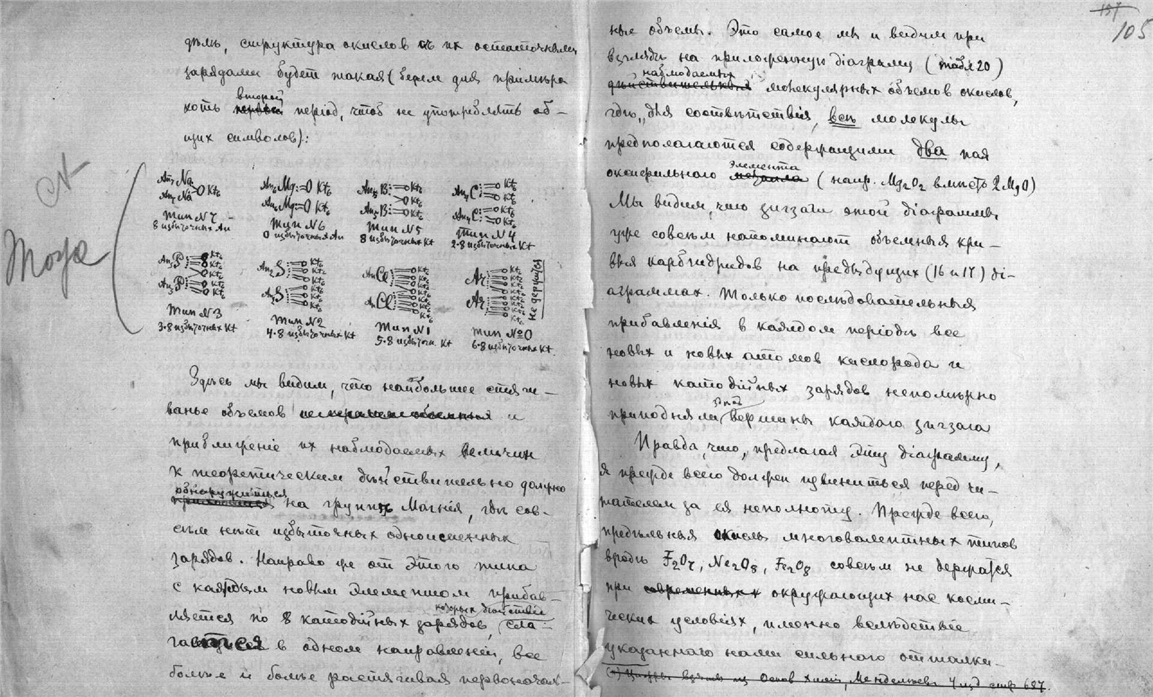 дѣль, структура окисловъ съ ихъ остаточными
зарядами будетъ такая (беремъ для примѣра
хоть второй
первый періодъ, чтобъ не употреблять об-
щихъ символовъ):
An₇Na
An₇Na O Kt₂
Типъ N 7
8 избыточныхъ An
An₆Mg=O Kt₂
An₆Mg=O Kt₂
Типъ N 6
0 избыточныхъ An
An₅B O Kt₂
An₅B O Kt₂
Типъ N 5
8 избыточныхъ Kt
An₄C O Kt₂
An₄C O Kt₂
Типъ N 4
2·8 избыточныхъ Kt
An₃P O Kt₂
An₃P O Kt₂
Типъ N 3
3·8 избыточныхъ Kt
An₂S O Kt₂
An₂S O Kt₂
Типъ N 2
4·8 избыточныхъ Kt
AnCl Kt₂
AnCl Kt₂
Типъ N 1
5·8 избыточн. Kt
Ar Kt₂
Ar Kt₂
Не держится
Типъ N 0
6·8 избыточныхъ Kt.
Здѣсь мы видимъ, что наибольшее стяги-
ванье объемовъ и
приближеніе ихъ наблюдаемыхъ величинъ
къ теоретическимъ дѣйствительно должно
обнаружиться
на группѣ Магнія, гдѣ сов-
сѣмъ нѣтъ избыточныхъ одноименныхъ
зарядовъ. Направо же отъ этого типа
съ каждымъ новымъ элементомъ прибав-
ляется по 8 катодійныхъ зарядовъ, которыхъ дѣйствіе сла-
гается въ одномъ направленіи, все
больше и больше растягивая первоначаль-
105
ные объемы. Это самое мы и видимъ при
взглядѣ на приложенную діаграмму (табл 20)
наблюдаемыхъ
дѣйствительныхъ молекулярныхъ объемовъ окисловъ,
гдѣ, для соотвѣтствія, всѣ молекулы
предполагаются содержащими два пая
окисляемаго элемента
металла (напр. Mg₂O₂ вмѣсто 2MgO)
Мы видимъ, что зигзаги этой діаграммы
уже совсѣмъ напоминаютъ объемныя кри-
выя карбгидридовъ на предъидущихъ (16 и 17) ді-
аграммахъ. Только послѣдовательныя
прибавленія въ каждомъ періодѣ все
новыхъ и новыхъ атомовъ кислорода и
новыхъ катодійныхъ зарядовъ непомѣрно
приподняли вершины каждаго зигзага
Правда, что, предлагая эту діаграмму,
я прежде всего долженъ извиниться передъ чи-
тателемъ за ея неполноту. Прежде всего,
предѣльныя окислы многовалентныхъ типовъ
вродѣ F₂O₇, Ne₂O₈, Fe₂O₈ совсѣмъ не держатся
при современныхъ окружающихъ насъ косми-
ческихъ условіяхъ, именно вслѣдствіе
указаннаго нами сильнаго отталки-
Цифры взяты изъ Основ Химіи, Менделѣева 7 изд стр 687.